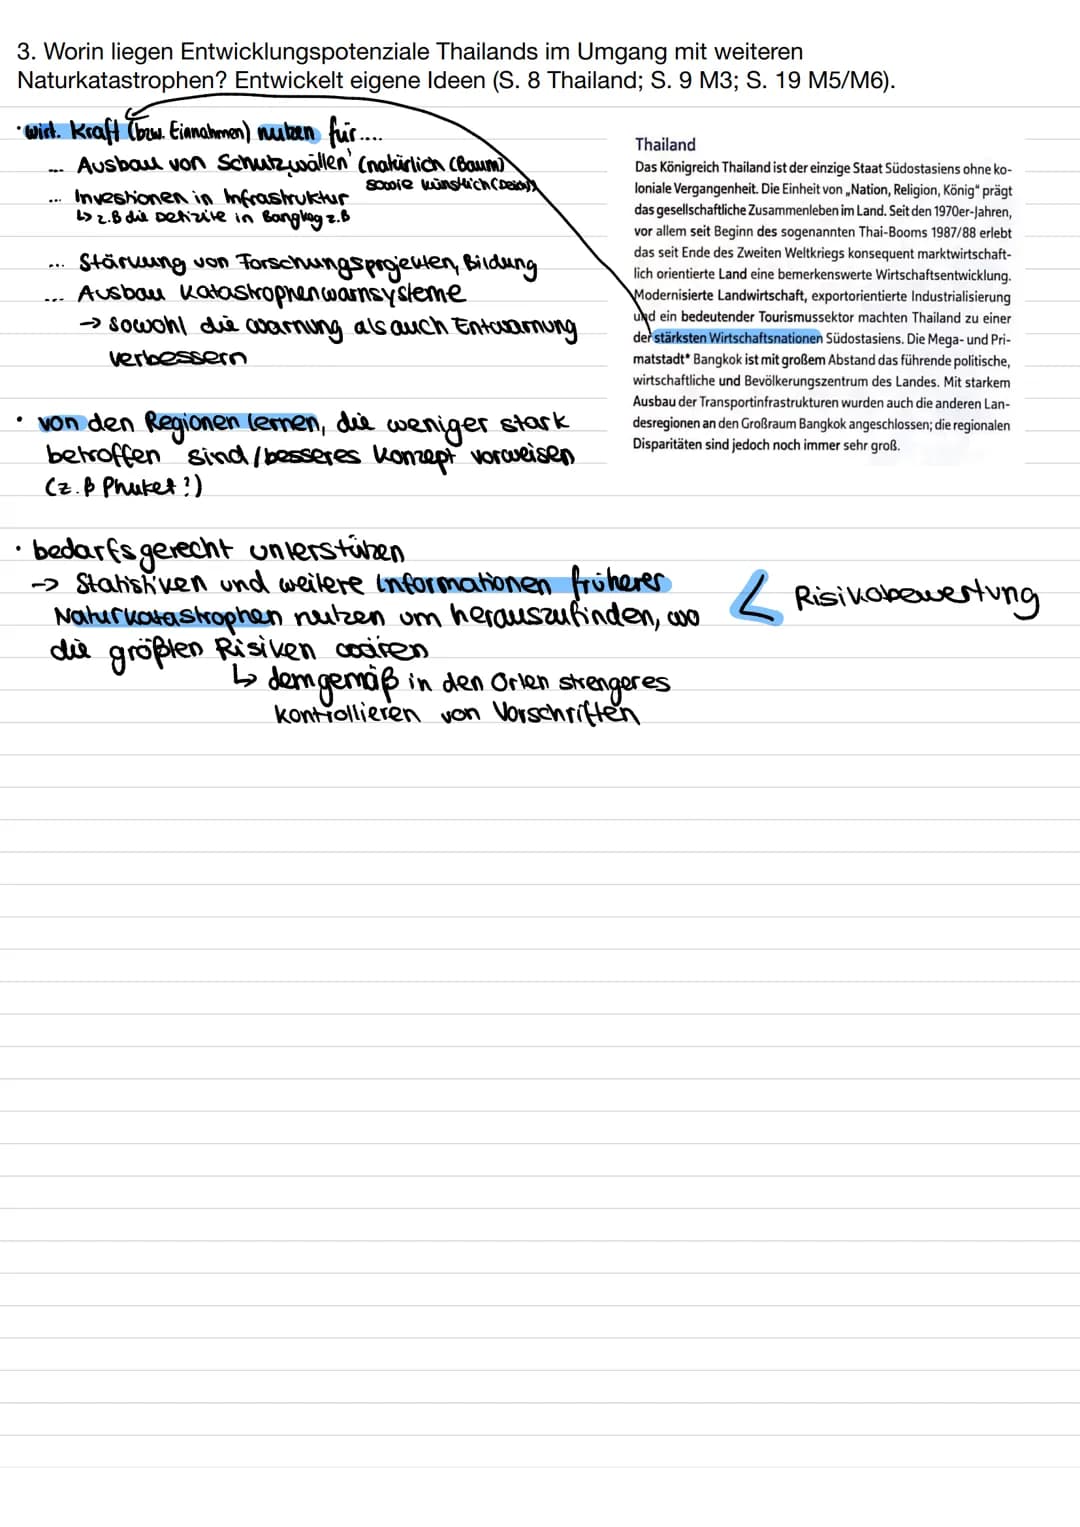 3. Worin liegen Entwicklungspotenziale Thailands im Umgang mit weiteren
Naturkatastrophen? Entwickelt eigene Ideen (S. 8 Thailand; S. 9 M3; S. 19 M5/M6).
· wirt. Kraft (bzw. Einnahmen) nutzen für....
... Ausbau von Schutzwällen (natürlich (Baum)
sowie künstlich (Deich))
... Investionen in Infrastruktur
↳ z.B die Defizite in Bangkog z.B
... Stärkung von Forschungsprojekten, Bildung
... Ausbau Katastrophenwarnsysteme
→ sowohl die Warnung als auch Entwarnung
verbessern
· von den Regionen lernen, die weniger stark
betroffen sind / besseres Konzept vorweisen
(z.B Phuket?)
· bedarfsgerecht unterstützen
→ Statistiken und weitere Informationen früherer
Naturkatastrophen nutzen um herauszufinden, wo
die größten Risiken wären
↳ demgemäß in den Orten strengeres
kontrollieren von Vorschriften
Risikobewertung
Thailand
Das Königreich Thailand ist der einzige Staat Südostasiens ohne ko-
loniale Vergangenheit. Die Einheit von „Nation, Religion, König“ prägt
das gesellschaftliche Zusammenleben im Land. Seit den 1970er-Jahren,
vor allem seit Beginn des sogenannten Thai-Booms 1987/88 erlebt
das seit Ende des Zweiten Weltkriegs konsequent marktwirtschaft-
lich orientierte Land eine bemerkenswerte Wirtschaftsentwicklung.
Modernisierte Landwirtschaft, exportorientierte Industrialisierung
und ein bedeutender Tourismussektor machten Thailand zu einer
der stärksten Wirtschaftsnationen Südostasiens. Die Mega- und Pri-
matstadt* Bangkok ist mit großem Abstand das führende politische,
wirtschaftliche und Bevölkerungszentrum des Landes. Mit starkem
Ausbau der Transportinfrastrukturen wurden auch die anderen Lan-
desregionen an den Großraum Bangkok angeschlossen; die regionalen
Disparitäten sind jedoch noch immer sehr groß.